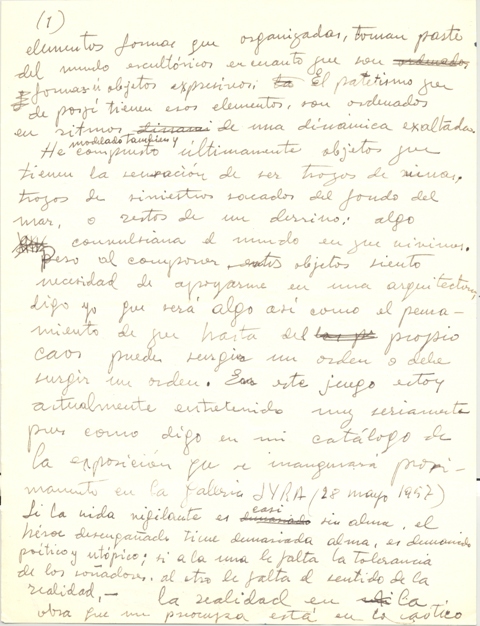 (1)
elementos formas que organizadas, toman parte
del mundo escultóricos en cuanto que son ordenados,
formas u objetos expresivos; El patetismo que
de por sí tienen esos elementos, son ordenados
en ritmos de una dinámica exaltada
modelado también y
He compuesto últimamente objetos que
tienen la sensación de ser trozos de ruinas,
trozos de siniestros sacados del fondo del
mar, o restos de un derribo; algo
convulsiona el mundo en que vivimos.
Pero al componer estos objetos siento
necesidad de apoyarme en una arquitectura
digo yo que será algo así como el pensa-
miento de que hasta del propio
caos puede surgir un orden o debe
surgir un orden. este juego estoy
actualmente entretenido muy seriamente
pues como digo en mi catálogo de
la exposición que se inaugurará proxi-
mamente en la Galeria SYRA (28 mayo 1957)
casi
Si la vida vigilante es demasiado sin alma, el
héroe desengañado tiene demasiada alma, es demasiado
poético y utópico; si a la una le falta la tolerancia
de los soñadores, al otro le falta el sentido de la
realidad.— la realidad en la
obra que me preocupa está en lo caótico